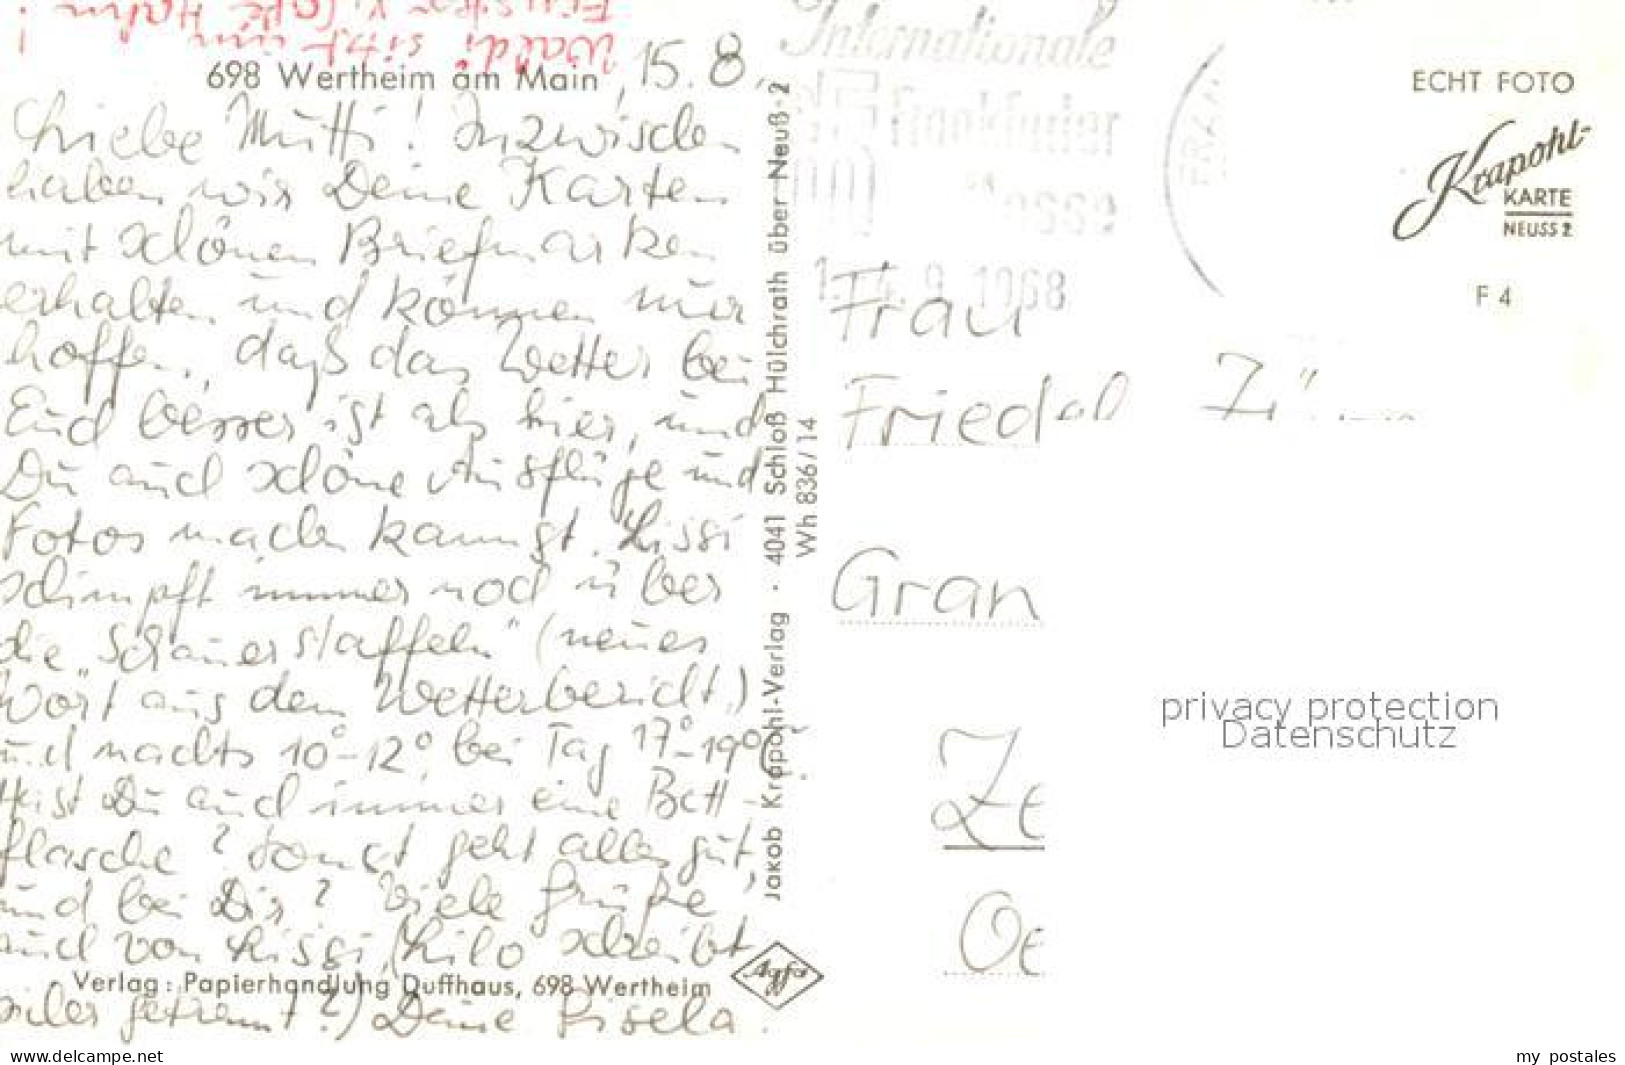 Waldi sitzt im
698 Wertheim am Main, 15. 8.
Liebe Mutti! Inzwischen
haben wir Deine Karten
mit schönen Briefmarken
erhalten und können nur
hoffen, daß das Wetter bei
Euch besser ist als hier, und
Du auch schöne Ausflüge und
Fotos machen kannst. Lissi
schimpft immer noch über
die „Schauerstaffeln" (neues
Wort aus dem Wetterbericht.)
und nachts 10°-12°, bei Tag 17°-19°C.
Hast Du auch immer eine Bett-
flasche? Sonst geht alles gut,
und bei Dir? Viele Grüße
auch von Lissi, (Lilo schreibt
sicher getrennt?) Deine Gisela
Verlag: Papierhandlung Duffhaus, 698 Wertheim
Jakob Krapohl-Verlag · 4041 Schloß Hülchrath über Neuß-2
Wh 836/14
Agfa
Internationale
Frankfurter
Messe
1968
ECHT FOTO
Krapohl-
KARTE
NEUSS 2
F 4
Frau
Gran
privacy protection
Datenschutz
www.delcampe.net
my_postales